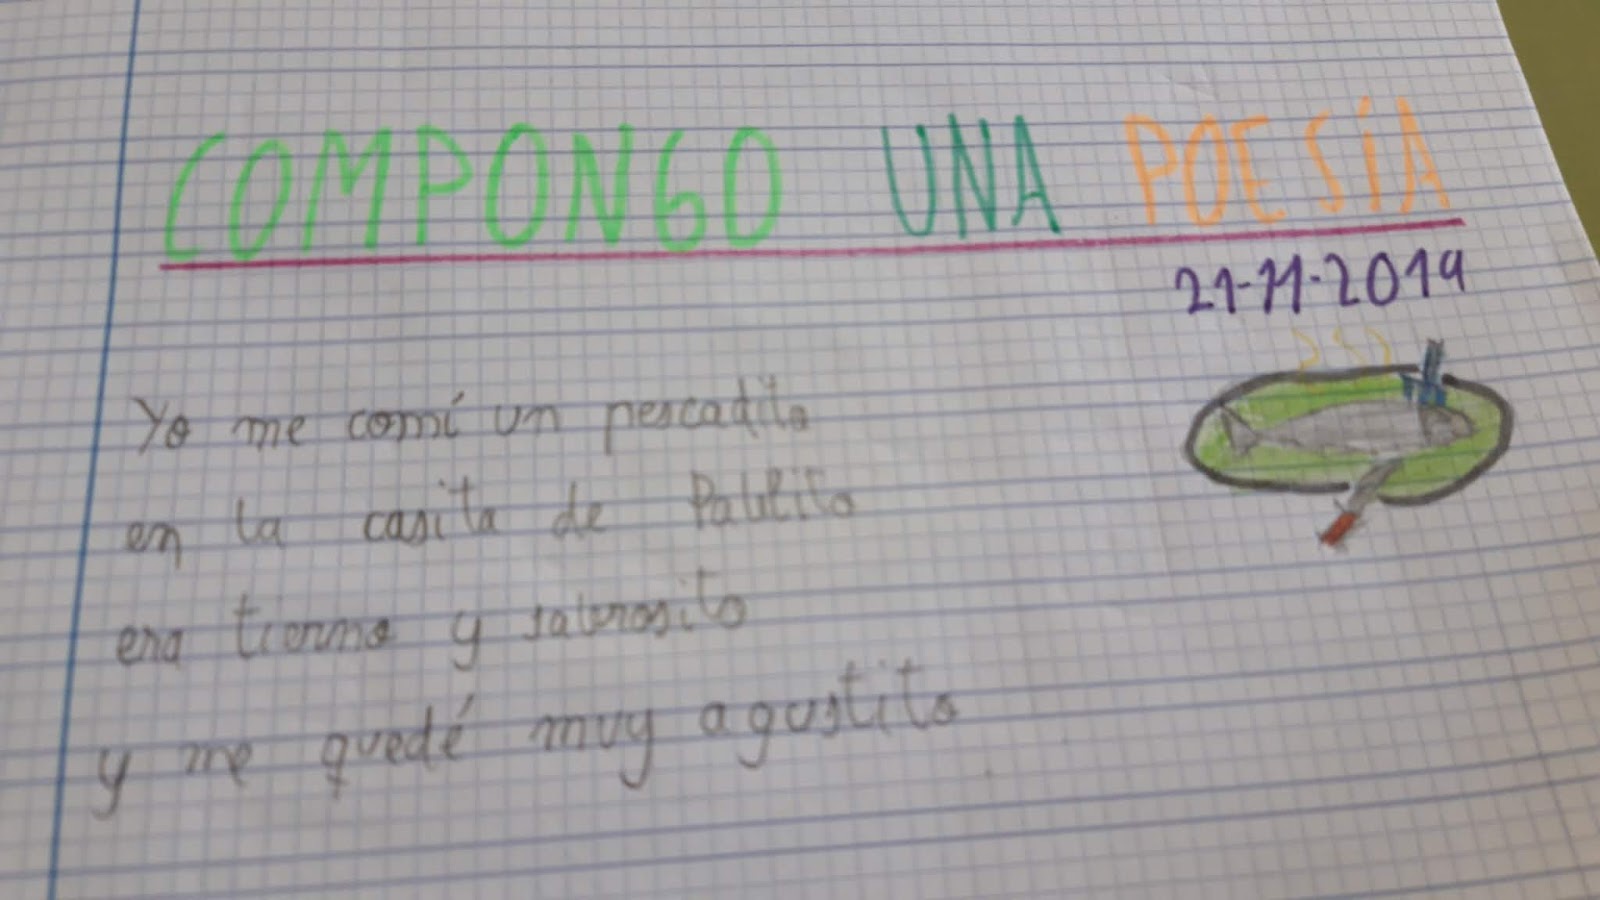 COMPONGO UNA POESÍA
21-11-2019
Yo me comí un pescadito
en la casita de Pablito
era tierno y sabrosito
y me quedé muy agustito